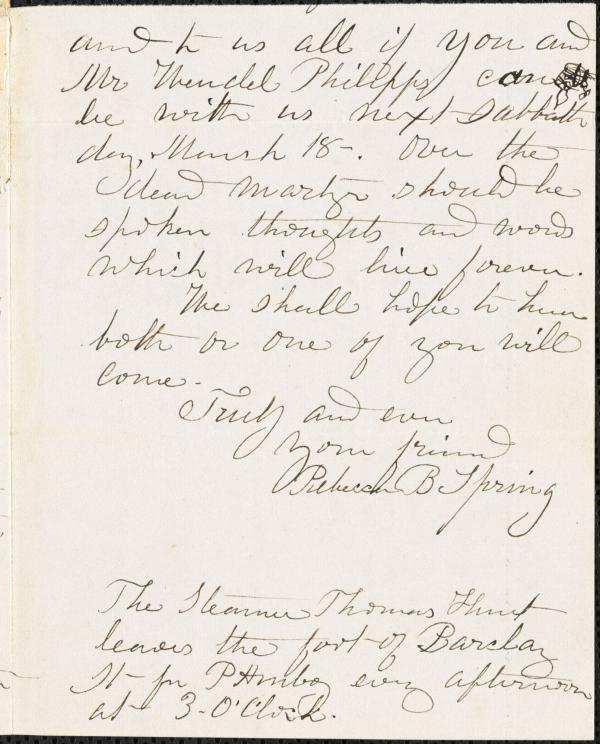 and to us all if you and
Mr Wendel Philipps can
be with us next Sabbath
day, March 18-. Over the
dead martyr should be
spoken thoughts and words
which will live forever.
We shall hope to hear
both or one of you will
come.
Truly and ever
your friend
Rebecca B Spring
The Steamer Thomas Hunt
leaves the foot of Barclay
St- for P Amboy every afternoon
at 3-O'Clock.